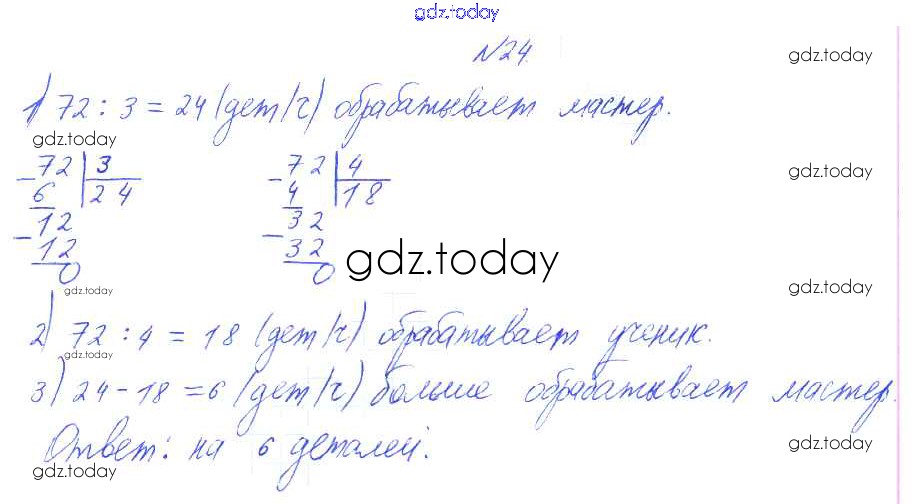 gdz.today
№24.
gdz.today
1) 72 : 3 = 24 (дет/ч) обрабатывает мастер.
gdz.today
72 | 3      72 | 4
6 | 24      4 | 18
gdz.today
12      32
12      32
0      0
gdz.today
gdz.today
gdz.today
2) 72 : 4 = 18 (дет/ч) обрабатывает ученик.
gdz.today
3) 24 - 18 = 6 (дет/ч) больше обрабатывает мастер.
Ответ: на 6 деталей.
gdz.today
gdz.today